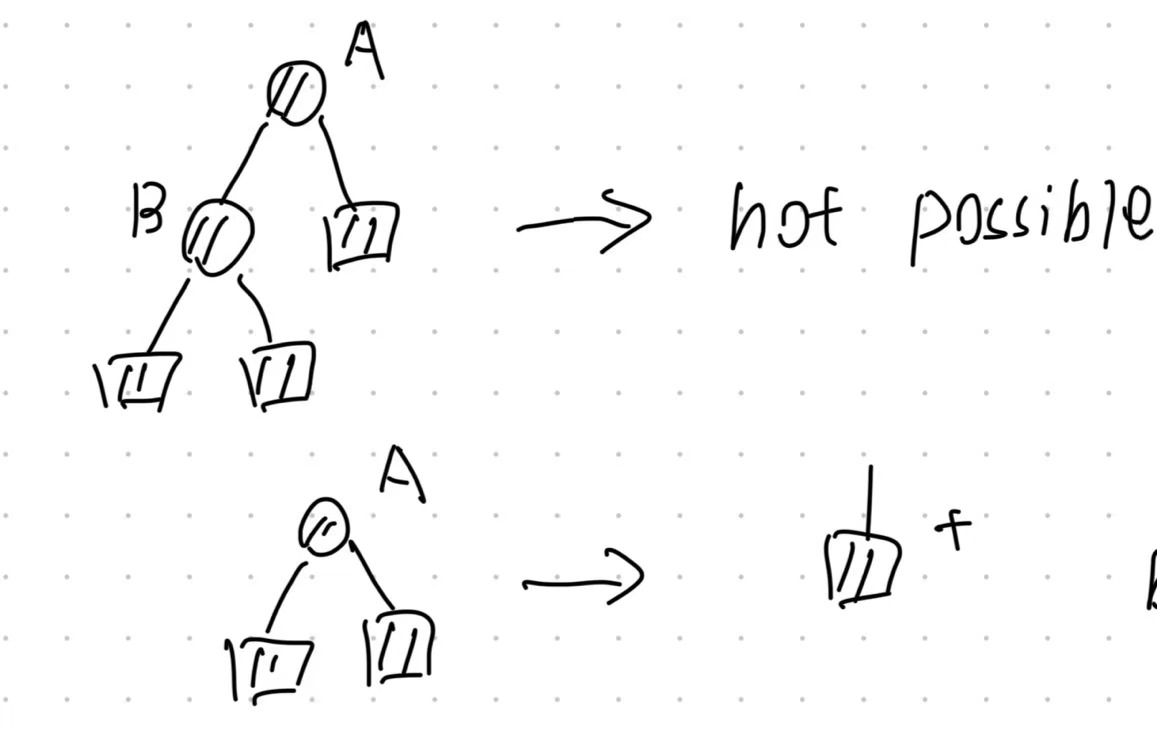 A
B
not possible
A
+